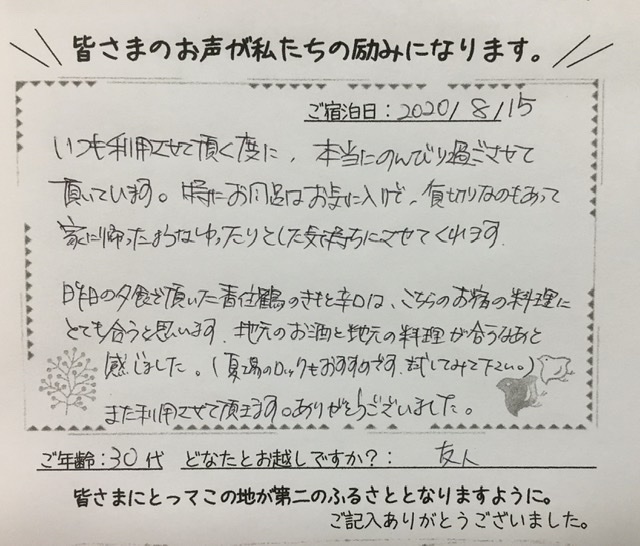 皆さまのお声が私たちの励みになります。
ご宿泊日：2020/8/15
いつも利用させて頂く度に、本当にのんびり過ごさせて
頂いています。特にお風呂はお気に入りで、貸切りなのもあって
家に帰ったようなゆったりとした気持ちにさせてくれます。
昨日の夕食で頂いた香住鶴のきもと辛口は、こちらのお宿の料理に
とても合うと思います。地元のお酒と地元の料理が合うなあと
感じました。(夏場のロックもおすすめです。試してみて下さい。)
また利用させて頂きます。ありがとうございました。
ご年齢：30代 どなたとお越しですか？：友人
皆さまにとってこの地が第二のふるさととなりますように。
ご記入ありがとうございました。